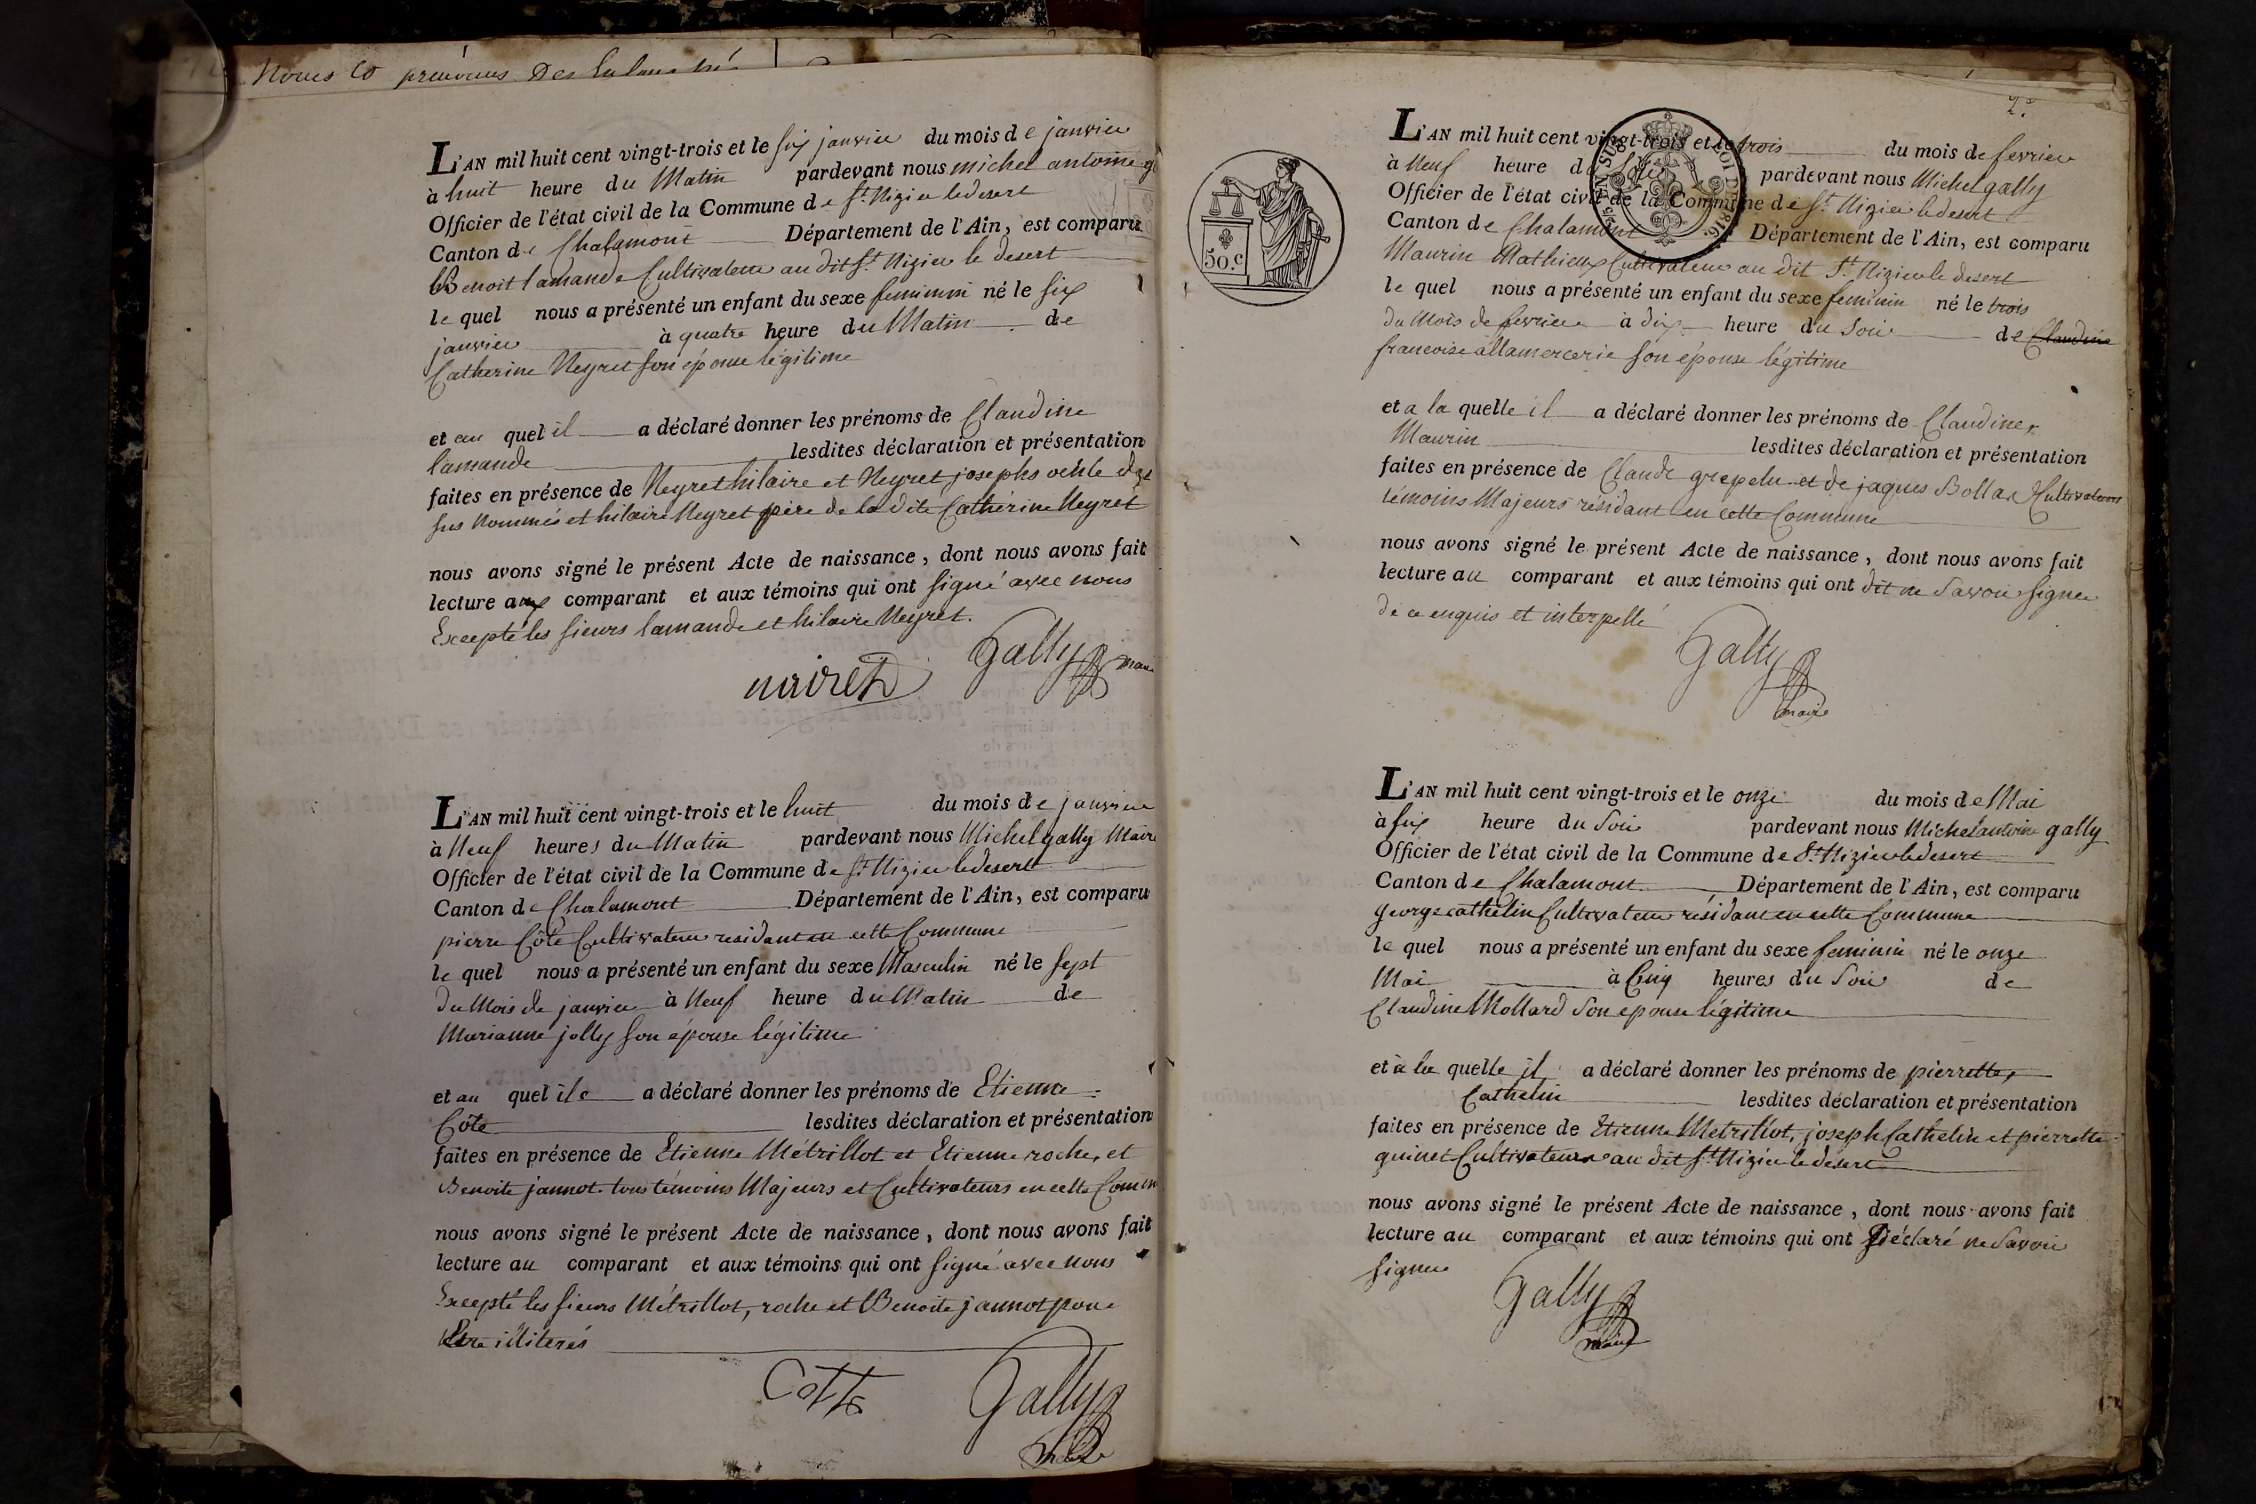 L'AN mil huit cent vingt-trois et le six janvier du mois de janvier
à huit heure du Matin pardevant nous michel antoine
Officier de l'état civil de la Commune de St. Nizier le desert
Canton de Chalamont Département de l'Ain, est comparu
Benoit lamande Cultivateur au dit St. Nizier le desert
le quel nous a présenté un enfant du sexe feminin né le six
janvier à quatre heure du Matin de
Catherine Neyret son épouse légitime
et au quel il a déclaré donner les prénoms de Claudine
lamande lesdites déclaration et présentation
faites en présence de Neyret hilaire et Neyret joseph
sus nommés et hilaire Neyret père de la dite Cathérine Neyret
nous avons signé le présent Acte de naissance, dont nous avons fait
lecture aux comparant et aux témoins qui ont signé avec nous
Excepté les sieurs lamande et hilaire Neyret.
Gally maire
L'AN mil huit cent vingt-trois et le huit du mois de janvier
à Neuf heures du Matin pardevant nous Michel gally Maire
Officier de l'état civil de la Commune de St. Nizier le desert
Canton de Chalamont Département de l'Ain, est comparu
pierre Côte Cultivateur residant en cette Commune
le quel nous a présenté un enfant du sexe Masculin né le sept
du Mois de janvier à Neuf heure du Matin de
Marianne jolly son épouse légitime
et au quel il a déclaré donner les prénoms de Etienne
Côte lesdites déclaration et présentation
faites en présence de Etienne Métrillot et Etienne roche, et
Benoite jannot tous témoins Majeurs et Cultivateurs en cette Comm
nous avons signé le présent Acte de naissance, dont nous avons fait
lecture au comparant et aux témoins qui ont signé avec nous
Excepté les sieurs Métrillot, roche et Benoite jannot pour
être illiterés
Cotte Gally
maire
2.
50.c
L'AN mil huit cent vingt-trois et le trois du mois de fevrier
à Neuf heure du Soir pardevant nous Michel gally
Officier de l'état civil de la Commune de St. Nizier le desert
Canton de Chalamont Département de l'Ain, est comparu
Maurin Mathieu Cultivateur au dit St. Nizier le desert
le quel nous a présenté un enfant du sexe feminin né le trois
du Mois de fevrier à dix heure du Soir de Claudine
francoise allamercerie son épouse légitime
et a la quelle il a déclaré donner les prénoms de Claudine
Maurin lesdites déclaration et présentation
faites en présence de Claude grepelu et de jaques Bollar Cultivateurs
témoins Majeurs résidant en cette Commune
nous avons signé le présent Acte de naissance, dont nous avons fait
lecture au comparant et aux témoins qui ont dit ne Savoir signer
de ce enquis et interpellé
Gally
maire
L'AN mil huit cent vingt-trois et le onze du mois de Mai
à six heure du Soir pardevant nous Michel antoine gally
Officier de l'état civil de la Commune de St. Nizier le desert
Canton de Chalamont Département de l'Ain, est comparu
george cathelin Cultivateur résidant en cette Commune
le quel nous a présenté un enfant du sexe feminin né le onze
Mai à Cinq heures du Soir de
Claudine Mollard Son epouse légitime
et à la quelle il a déclaré donner les prénoms de pierrette,
Cathelin lesdites déclaration et présentation
faites en présence de Etienne Metrillot, joseph Cathelin et pierrette
guinet Cultivateurs au dit St. Nizier le desert
nous avons signé le présent Acte de naissance, dont nous avons fait
lecture au comparant et aux témoins qui ont déclaré ne Savoir
signer
Gally
maire